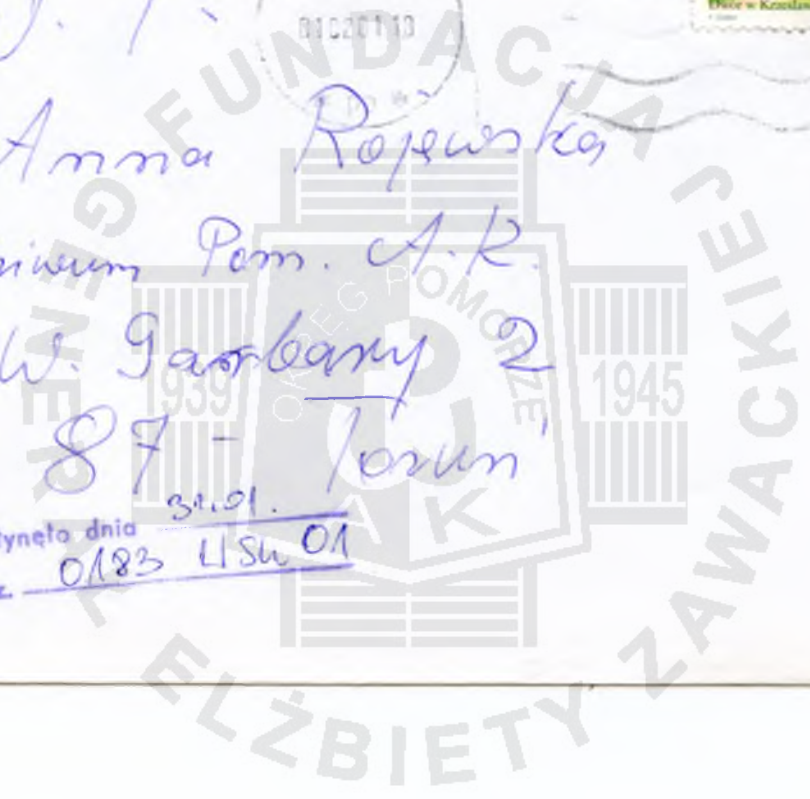 010201 10
Dwór w Krzesław
Anna Rojewska
Pom. A.K.
W. Garbary 2
87 - Toruń
ynęło dnia 31.01.
0183 01
FUNDACJA
GENERAŁ
ELŻBIETY
ZAWACKIEJ
OKRĘG POMORZE
1939
1945
AK